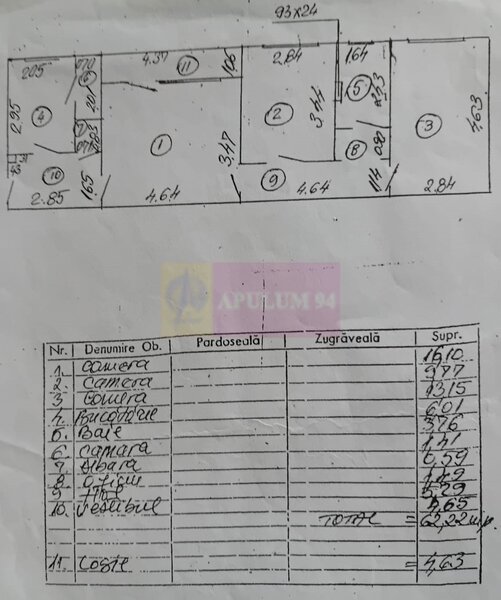 93x24
205
4.37
11
106
2.84
164
2.95
4
201
1
3,47
2
3,44
5
2,23
3
4,63
10
2.85
165
4.64
9
4.64
8
080
114
2.84
APULUM 94
Nr. Denumire Ob. Pardoseală Zugrăveală Supr.
1. camera 16,10
2 camera 9,77
3 Camera 13,15
4. Bucătărie 6,01
5. Baie 3,76
6 camara 1,41
7 Debara 0,59
8 Oficiu
9 Hol 5,29
10. vestibul 4,65
TOTAL = 62,22 m.p.
11. = 4,63